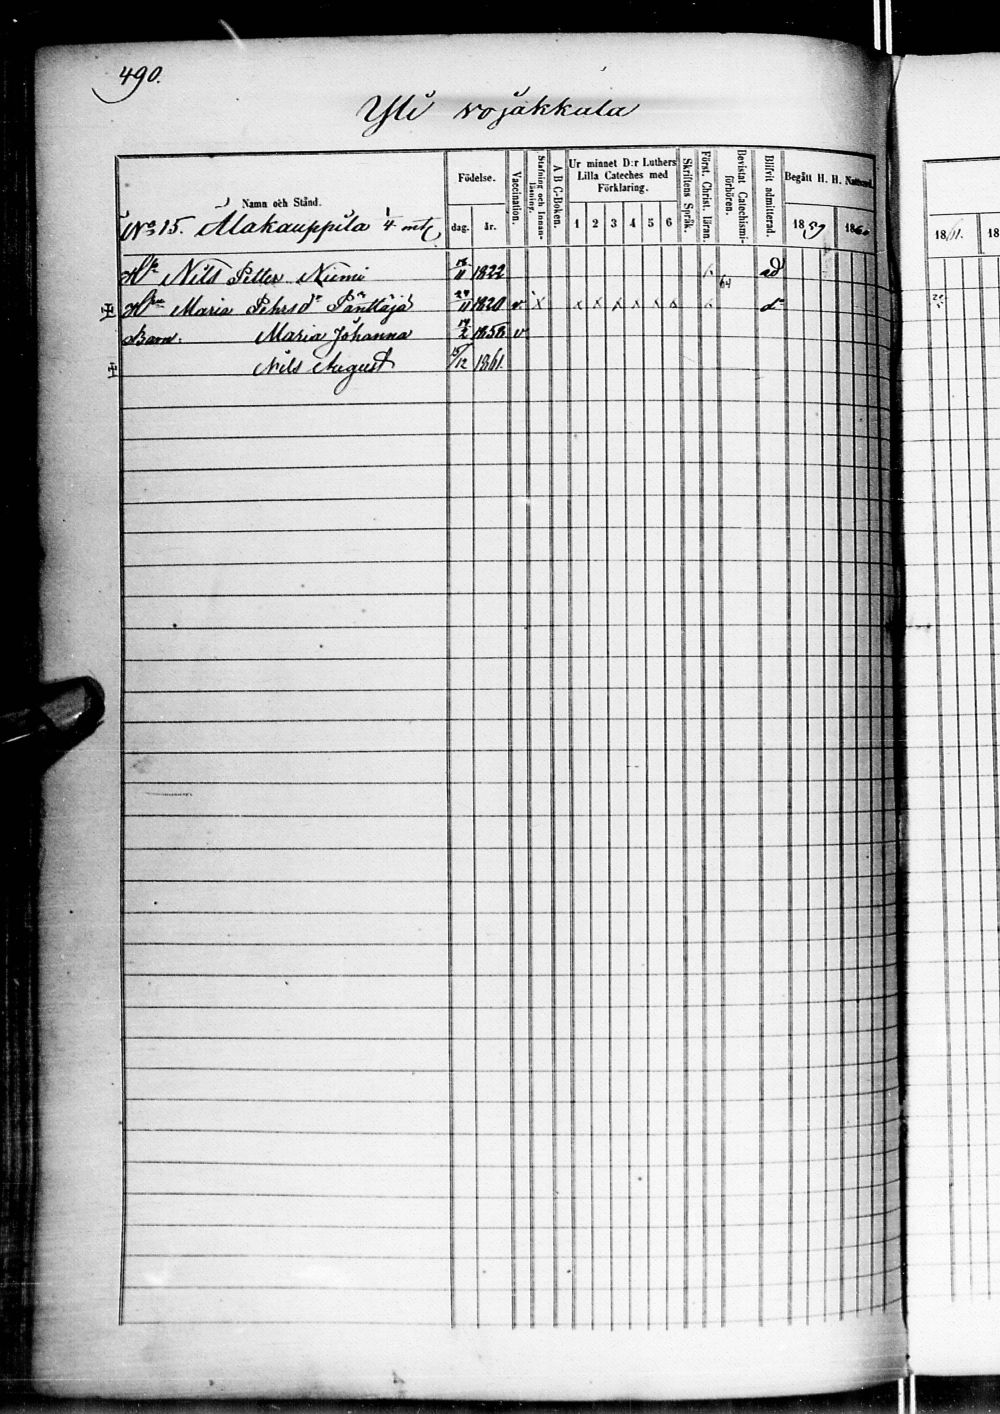 490.
Yli vojakkala
Namn och Stånd.
Födelse.
dag. år.
Vaccination.
Stafning och Innanläsning.
A B C-Boken.
Ur minnet D:r Luthers Lilla Cateches med Förklaring.
1 2 3 4 5 6
Skriftens Språk.
Först. Christ. läran.
Bevistat Catechismi-förhören.
Blifvit admitterad.
Begått H. H. Nattvard.
1859 1860
1861. 18
No 15. Alakauppila 1/4 mtl
Nils Petter Niemi 11 1822 ad
Maria Pehrsdr Pänttäjä 24/11 1820 v. x x x x x x x do
Barn: Maria Johanna 1858 v
Nils August 15/12 1861.
64